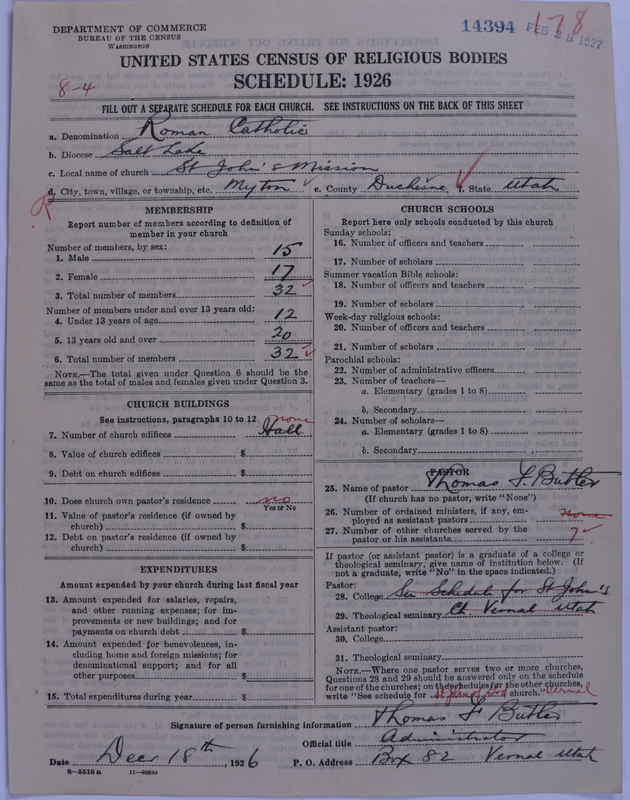 DEPARTMENT OF COMMERCE
BUREAU OF THE CENSUS
WASHINGTON
14394 178
FEB 28 1927
UNITED STATES CENSUS OF RELIGIOUS BODIES
SCHEDULE: 1926
8-4
FILL OUT A SEPARATE SCHEDULE FOR EACH CHURCH. SEE INSTRUCTIONS ON THE BACK OF THIS SHEET
a. Denomination Roman Catholic
b. Diocese Salt Lake
c. Local name of church St John's Mission
d. City, town, village, or township, etc. Myton e. County Duchesne f. State Utah
R
MEMBERSHIP
Report number of members according to definition of
member in your church
Number of members, by sex:
1. Male 15
2. Female 17
3. Total number of members 32
Number of members under and over 13 years old:
4. Under 13 years of age 12
5. 13 years old and over 20
6. Total number of members 32
NOTE.—The total given under Question 6 should be the
same as the total of males and females given under Question 3.
CHURCH BUILDINGS
See instructions, paragraphs 10 to 12 none
7. Number of church edifices Hall
8. Value of church edifices $
9. Debt on church edifices $
10. Does church own pastor's residence no
Yes or No
11. Value of pastor's residence (if owned by
church) $
12. Debt on pastor's residence (if owned by
church) $
EXPENDITURES
Amount expended by your church during last fiscal year
13. Amount expended for salaries, repairs,
and other running expenses; for im-
provements or new buildings; and for
payments on church debt $
14. Amount expended for benevolences, in-
cluding home and foreign missions; for
denominational support; and for all
other purposes $
15. Total expenditures during year $
CHURCH SCHOOLS
Report here only schools conducted by this church
Sunday schools:
16. Number of officers and teachers
17. Number of scholars
Summer vacation Bible schools:
18. Number of officers and teachers
19. Number of scholars
Week-day religious schools:
20. Number of officers and teachers
21. Number of scholars
Parochial schools:
22. Number of administrative officers
23. Number of teachers—
a. Elementary (grades 1 to 8)
b. Secondary
24. Number of scholars—
a. Elementary (grades 1 to 8)
b. Secondary
PASTOR
25. Name of pastor Thomas F. Butler
(If church has no pastor, write "None")
26. Number of ordained ministers, if any, em-
ployed as assistant pastors none
27. Number of other churches served by the
pastor or his assistants 7
If pastor (or assistant pastor) is a graduate of a college or
theological seminary, give name of institution below. (If
not a graduate, write "No" in the space indicated.)
Pastor:
28. College See Schedule for St John's
29. Theological seminary Ch. Vernal Utah
Assistant pastor:
30. College
31. Theological seminary
NOTE.—Where one pastor serves two or more churches,
Questions 28 and 29 should be answered only on the schedule
for one of the churches; on the schedules for the other churches,
write "See schedule for church." Vernal
Signature of person furnishing information Thomas F Butler
Official title Administrator
Date Decr 18th, 1926 P. O. Address Box 82 Vernal Utah
8-5518a 11-9054a